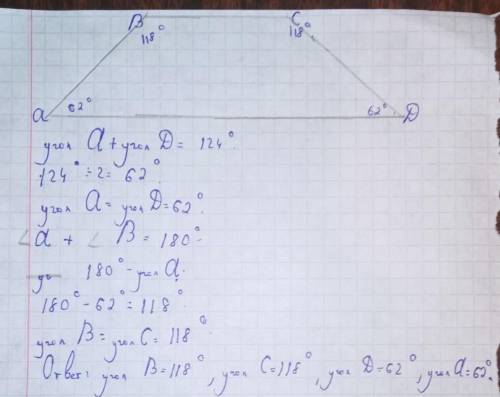 B C
118° 118°
62° 62°
A D
угол A + угол D = 124°.
124° ÷ 2 = 62°
угол A = угол D = 62°.
∠A + ∠B = 180°
180° - угол A.
180° - 62° = 118°
угол B = угол C = 118°
Ответ: угол B = 118°, угол C = 118°, угол D = 62°, угол A = 62°.